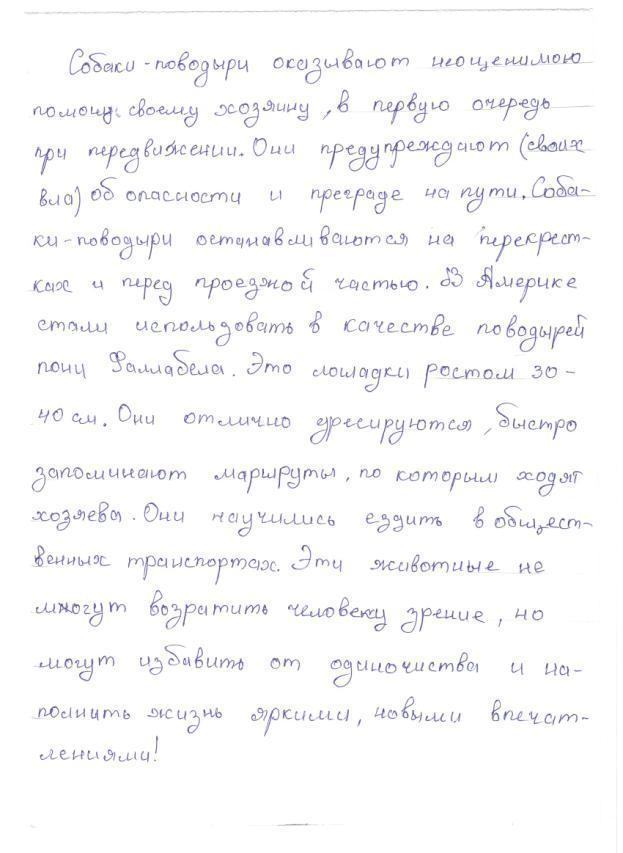 Собаки-поводыри оказывают неоценимою
помощь своему хозяину, в первую очередь
при передвижении. Они предупреждают (своих
вла) об опасности и преграде на пути. Соба-
ки-поводыри останавливаются на перекрест-
ках и перед проезжой частью. В Америке
стали использовать в качестве поводырей
пони Фаллабела. Это лошадки ростом 30-
40 см. Они отлично дресируются, быстро
запоминают маршруты, по которым ходят
хозяева. Они научились ездить в общест-
венных транспортах. Эти животные не
могут возратить человеку зрение, но
могут избавить от одиночиства и на-
полнить жизнь яркими, новыми впечат-
лениями!